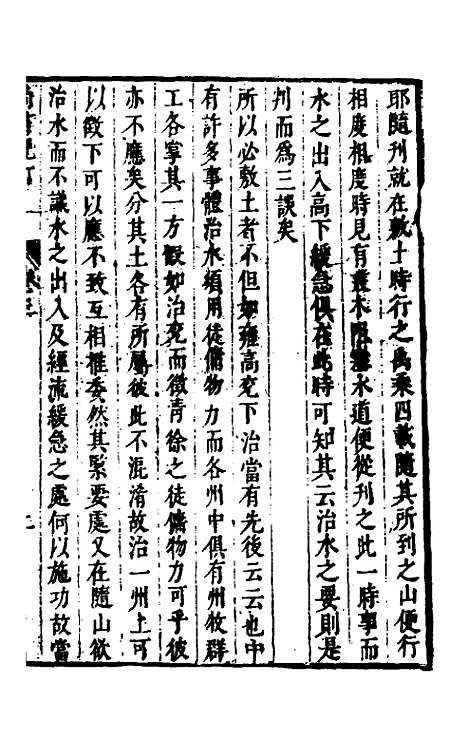 耶隨刊就在敷土時行之禹乘四載隨其所到之山便行
相度相度時見有叢木阻塞水道便從刊之此一時事而
水之出入高下緩急俱在此時可知其云治水之要則是
判而爲三談矣
所以必敷土者不但如雍高兗下治當有先後云云也中
有許多事體治水須用徒傭物力而各州中俱有州牧群
工各掌其一方假如治兗而徵青徐之徒傭物力可乎彼
亦不應矣分其土各有所屬彼此不混淆故治一州上可
以徵下可以應不致互相推委然其緊要處又在隨山欲
治水而不識水之出入及經流緩急之處何以施功故當